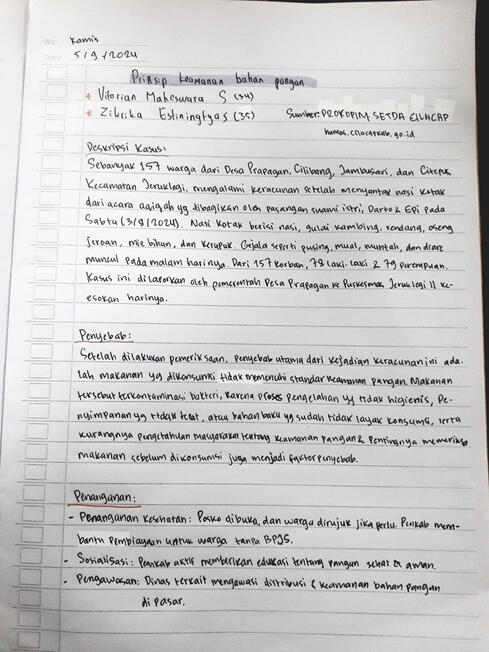 No Kamis
Date 5/9/2024
Prinsip keamanan bahan pangan
* Vitorian Maheswara S (34)
* Zikrika Estiningtyas (35) Sumber: PROKOPIM SETDA CILACAP
humas.cilacapkab.go.id
Deskripsi Kasus:
Sebanyak 157 warga dari Desa Prapagan, Cilibang, Jambusari, dan Citepus
Kecamatan Jeruklegi, mengalami keracunan setelah menyantap nasi kotak
dari acara aqiqah yg dibagikan oleh pasangan suami istri, Darto & Epi pada
Sabtu (3/8/2024). Nasi kotak berisi nasi, gulai kambing, rendang, oseng
jeroan, mie bihun, dan kerupuk. Gejala seperti pusing, mual, muntah, dan diare
muncul pada malam harinya. Dari 157 korban, 78 laki-laki & 79 perempuan.
Kasus ini dilaporkan oleh pemerintah Desa Prapagan ke Puskesmas Jeruklegi II ke-
esokan harinya.
Penyebab:
Setelah dilakukan pemeriksaan, penyebab utama dari kejadian keracunan ini ada-
lah makanan yg dikonsumsi tidak memenuhi standar keamanan pangan. Makanan
tersebut terkontaminasi bakteri, karena proses pengelahan yg tidak higienis, pe-
nyimpanan yg tidak tepat, atau bahan baku yg sudah tidak layak konsumsi, serta
kurangnya pengetahuan masyarakat tentang keamanan pangan & pentingnya memeriksa
makanan sebelum dikonsumsi juga menjadi faktor penyebab.
Penanganan:
- Penanganan kesehatan: Posko dibuka, dan warga dirujuk jika perlu. Pemkab mem-
bantu pembiayaan untuk warga tanpa BPJS.
- Sosialisasi: Pemkab aktif memberikan edukasi tentang pangan sehat & aman.
- Pengawasan: Dinas terkait mengawasi distribusi & keamanan bahan pangan
di pasar.